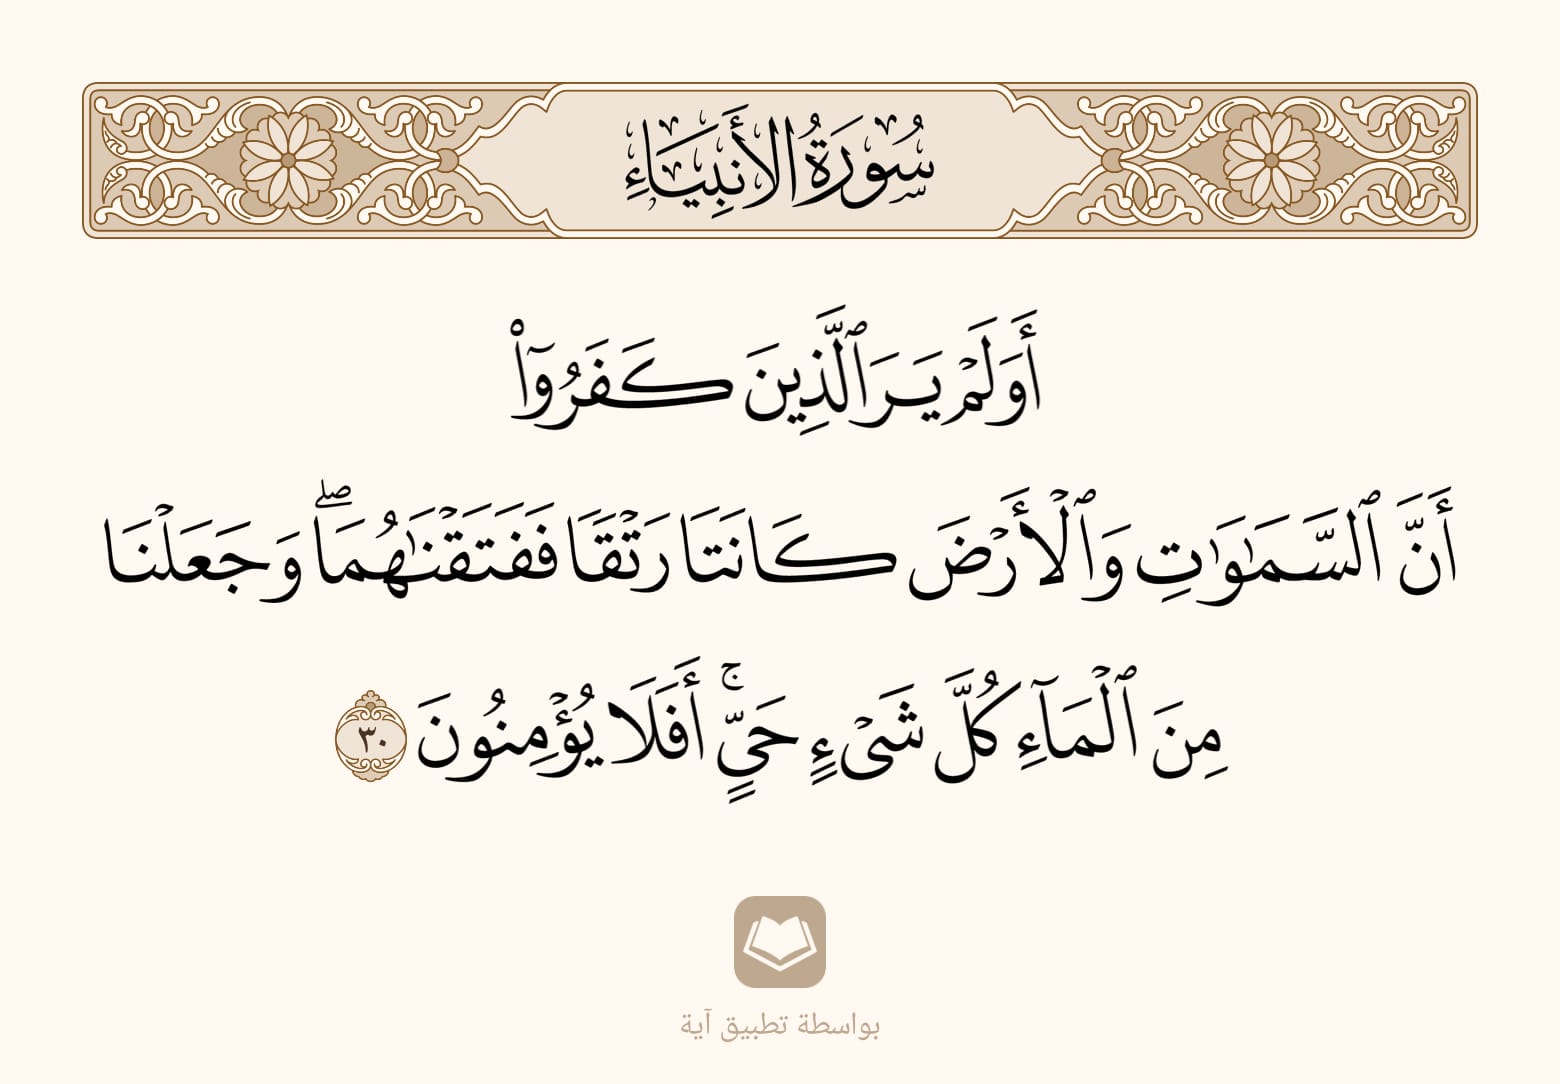 سُورَةُ الأَنبِيَاءِ
أَوَلَمْ يَرَ ٱلَّذِينَ كَفَرُوٓا۟
أَنَّ ٱلسَّمَٰوَٰتِ وَٱلْأَرْضَ كَانَتَا رَتْقًا فَفَتَقْنَٰهُمَا ۖ وَجَعَلْنَا
مِنَ ٱلْمَآءِ كُلَّ شَىْءٍ حَىٍّ ۚ أَفَلَا يُؤْمِنُونَ ٣٠
بواسطة تطبيق آية